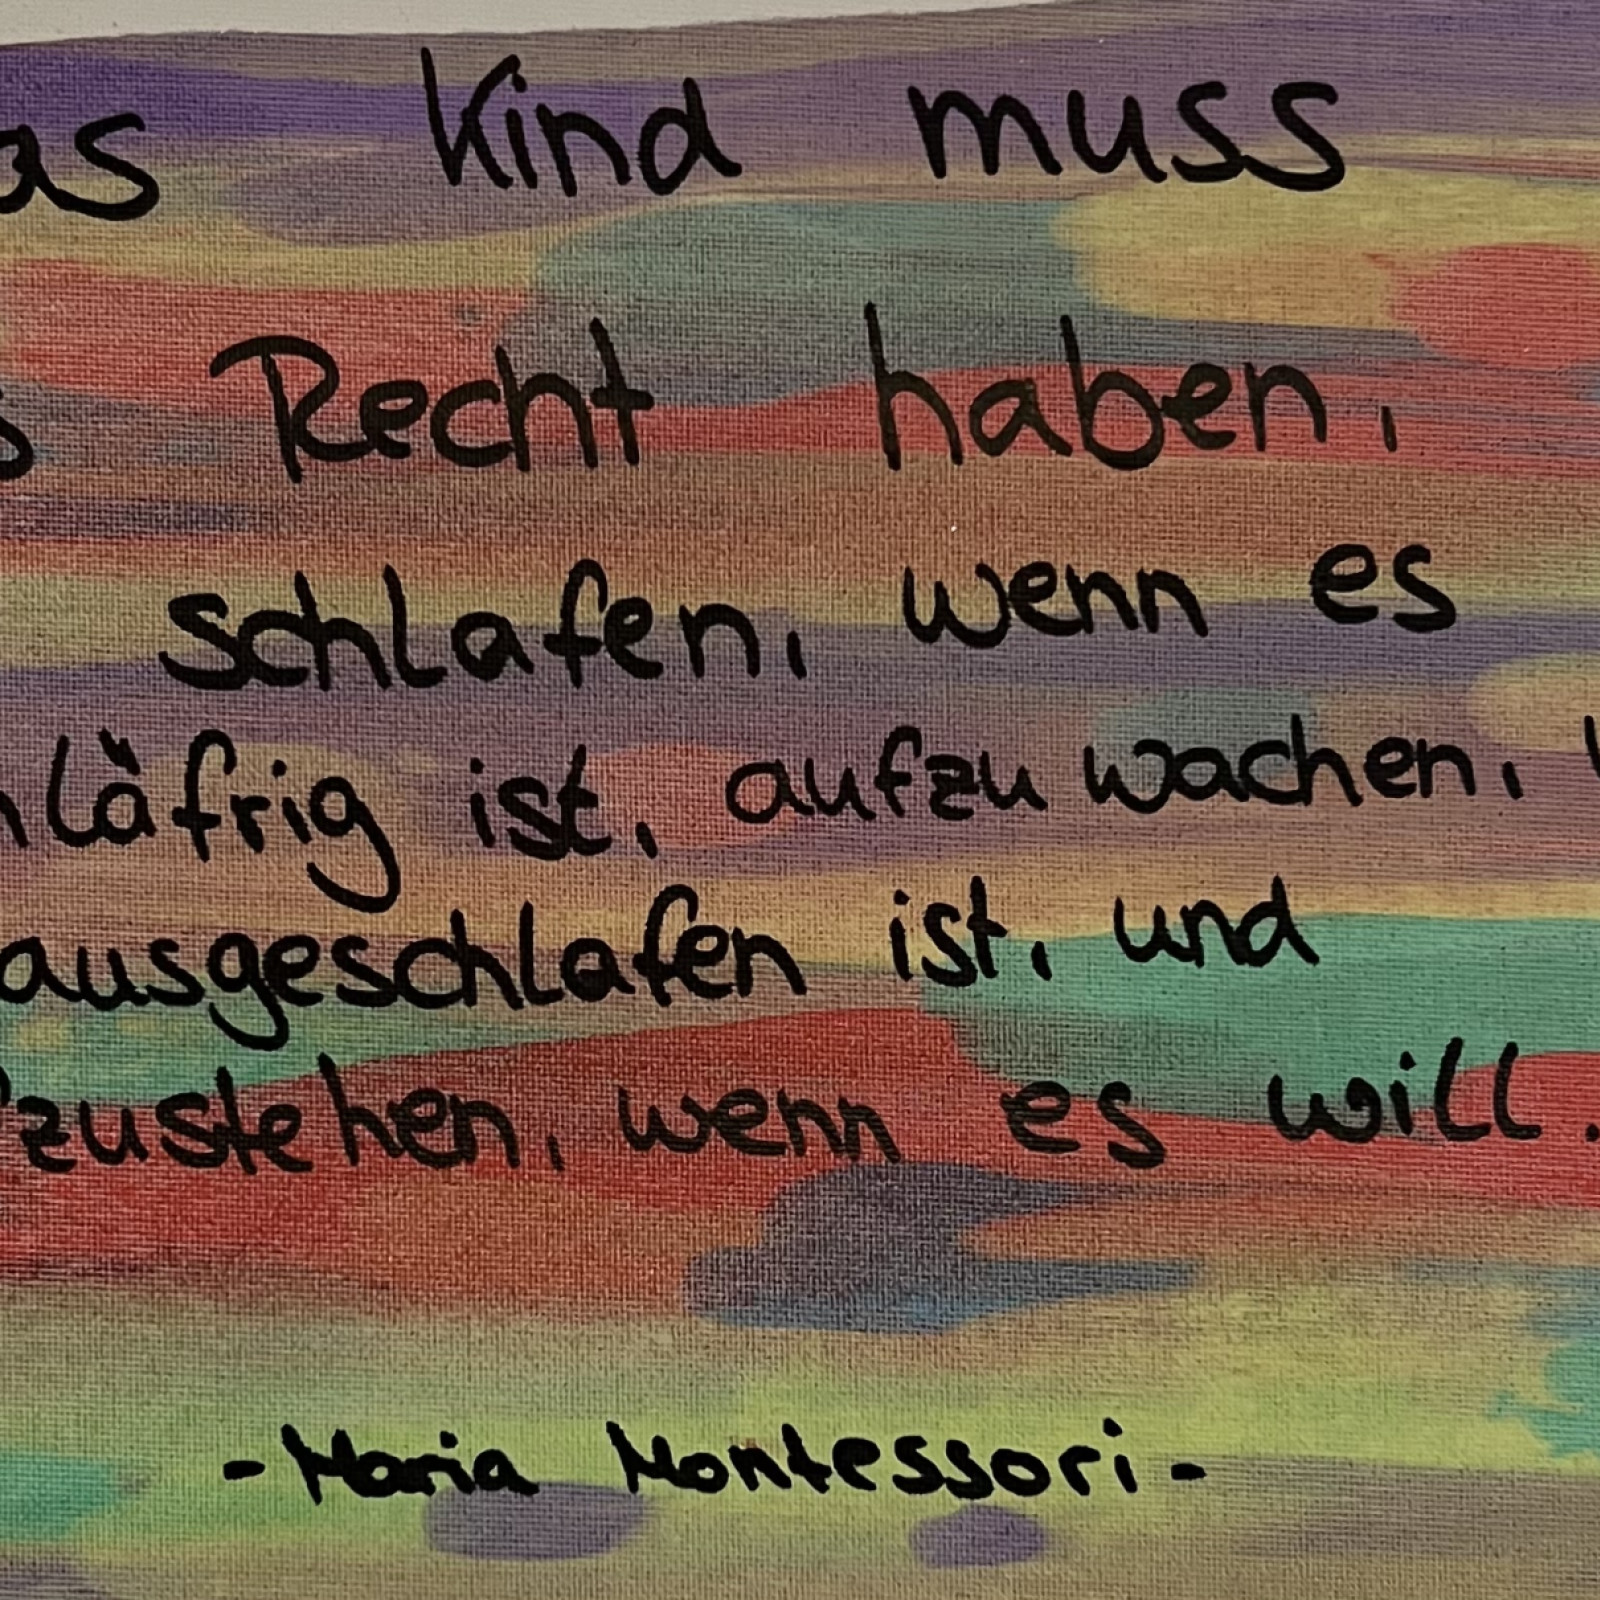 as Kind muss
s Recht haben,
schlafen, wenn es
hläfrig ist, aufzuwachen,
ausgeschlafen ist, und
zustehen, wenn es will.
-Maria Montessori-